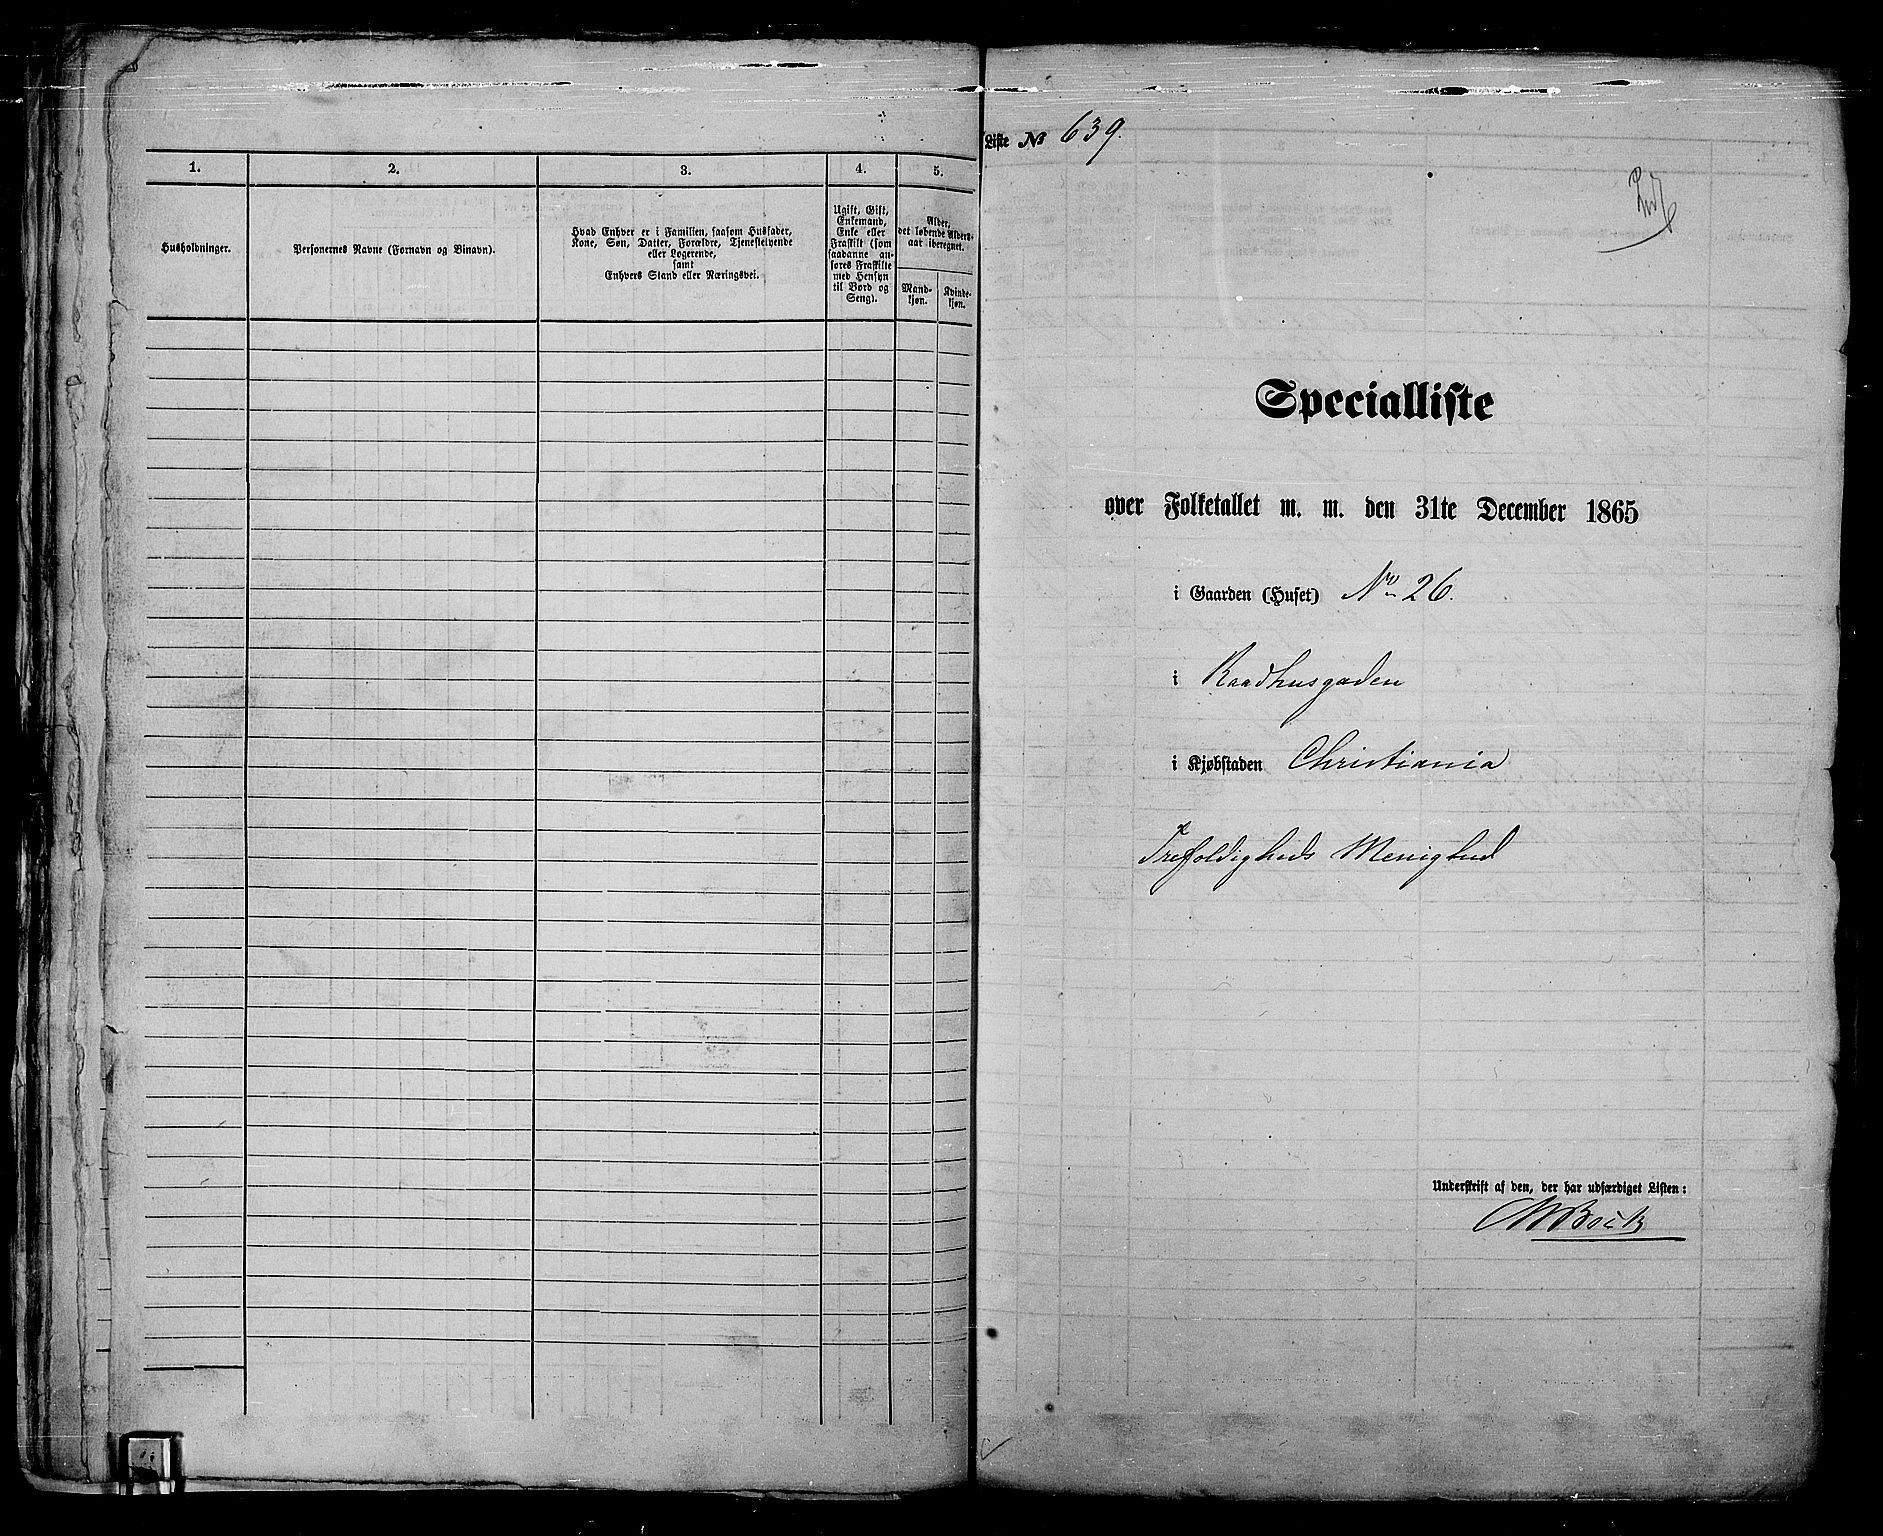 1.
2.
3.
4.
5.
Husholdninger.
Personernes Navne (Fornavn og Binavn).
Hvad Enhver er i Familien, saasom Husfader,
Kone, Søn, Datter, Forældre, Tjenestetyende
eller Logerende,
samt
Enhvers Stand eller Næringsvei.
Ugift, Gift,
Enkemand,
Enke eller
Fraskilt (som
saadanne an-
føres Fraskilte
med Hensyn
til Bord og
Seng).
Alder,
det løbende Alders-
aar iberegnet.
Mand-
kjøn.
Kvinde-
kjøn.
Liste № 639.
Specialliste
over Folketallet m. m. den 31te December 1865
i Gaarden (Huset) No 26.
i Raadhusgaden
i Kjøbstaden Christiania
Trefoldigheds Menighed
Underskrift af den, der har udfærdiget Listen: